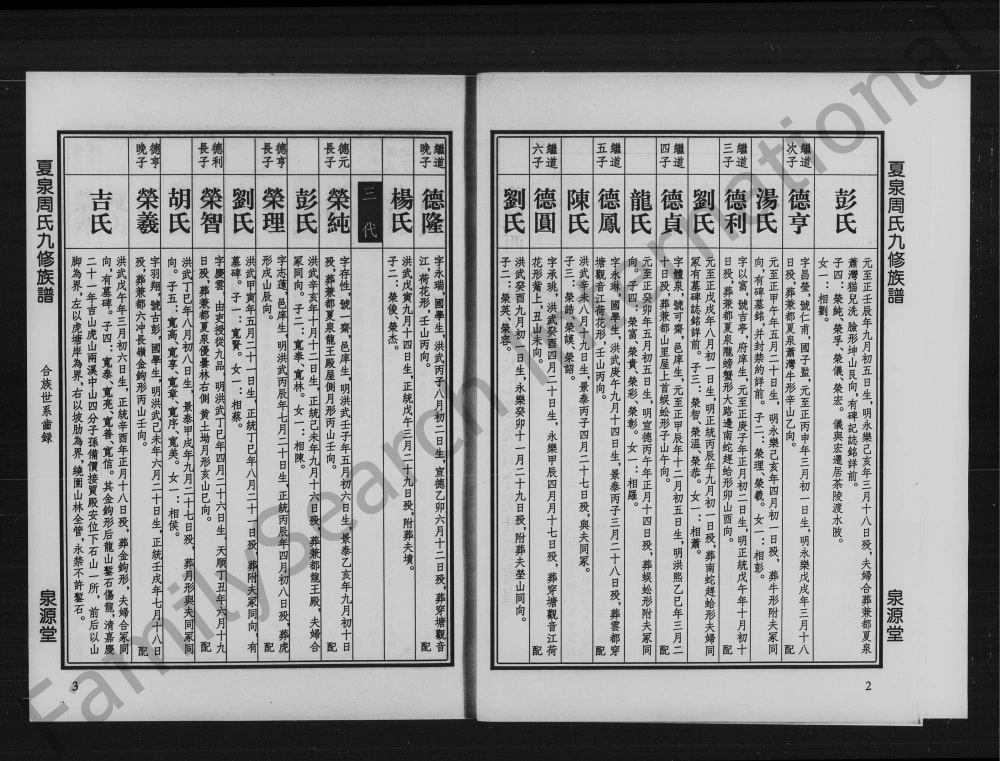 夏泉周氏九修族譜
泉源堂
2
彭氏
元至正壬辰年九月初五日生，明永樂己亥年三月十八日歿，夫婦合葬兼都夏泉
蕭灣貓兒洗臉形坤山艮向，有碑記誌銘詳前。
子四：榮純、榮孚、榮儀、榮宏。儀與宏遷居茶陵渡水陂。
女一：相劉。
繼道
次子
德亨
字昌瑩，號仁甫，國子監，元至正丙申年三月初一日生，明永樂戊戌年三月十八
日歿，葬兼都夏泉蕭灣牛形辛山乙向。
配
湯氏
元至正甲午年五月二十日生，明永樂己亥年四月初一日歿，葬牛形附夫冢同
向，有碑墓銘，并封禁約詳前。子二：榮理、榮羲。女一：相彭。
繼道
三子
德利
字以富，號吉亭，府庠生，元至正庚子年正月初二日生，明正統戊午年十月初十
日歿，葬兼都夏泉隴螃蟹形大路邊南蛇趕蛤形卯山酉向。
配
劉氏
元至正戊戌年八月初一日生，明正統丙辰年九月初一日歿，葬南蛇趕蛤形夫婦同
冢有碑墓誌銘詳前。子三：榮智、榮溫、榮恭。女一：相蕭。
繼道
四子
德貞
字體泉，號可齋，邑庠生，元至正甲辰年十二月初五日生，明洪熙乙巳年三月二
日歿，葬兼都泰山里屋上首蜈蚣形子山午向。
配
龍氏
元至正癸卯年五月初五日生，明宣德丙午年正月十四日歿，葬蜈蚣形附夫冢同
向。子四：榮富、榮貴、榮彩、榮彰。女一：相羅。
繼道
五子
德鳳
字永琳，國學生，洪武庚午九月十四日生，景泰丙子三月二十八日歿，葬雲都穿
塘觀音江荷花形，壬山丙向。
配
陳氏
洪武辛未八月十九日生，景泰丙子四月二十七日歿，與夫同冢。
子三：榮誥、榮謨、榮詔。
繼道
六子
德圓
字承珖，洪武癸酉四月二十日生，永樂癸卯十月二十七日歿，葬穿塘觀音江荷
花形觜上，丑山未向。
配
劉氏
洪武癸酉九月初一日生，永樂癸卯十一月二十九日歿，附葬夫塋山同向。
子二：榮英、榮容。
繼道
晚子
德隆
字永瑞，國學生，洪武丙子八月初二日生，宣德乙卯六月十二日歿，葬穿塘觀音
江，荷花形，壬山丙向。
配
楊氏
洪武戊寅九月十四日生，正統戊午三月二十九日歿，附葬夫墳。
子二：榮俊、榮杰。
三代
德元
長子
榮純
字存性，號一齋，邑庠生，明洪武壬子年五月初六日生，景泰乙亥年九月初十日
歿，葬兼都夏泉龍王殿屋側月形丙山壬向。
配
彭氏
洪武辛亥年十月十二日生，正統己未年九月十六日歿，葬兼都龍王殿，夫婦合
冢同向。子二：寬泰、寬林。女一：相陳。
德亨
長子
榮理
字志蓮，邑庠生，明洪武丙辰年七月二十日生，正統丙辰年四月初八日歿，葬虎
形戌山辰向。
配
劉氏
洪武甲寅年五月二十一日生，正統丁巳年八月二十一日歿，葬附夫冢同向，有
墓碑。子一：寬賢。女一：相蔡。
德利
長子
榮智
字慶雲，由吏授從九品，明洪武丁巳年四月二十六日生，天順丁丑年六月十九
日歿，葬兼都夏泉優曇林右側，黄土坳月形亥山巳向。
配
胡氏
洪武丁巳年八月初八日生，景泰甲戌年九月二十七日歿，葬月形與夫同冢同
向。子五：寬高、寬享、寬章、寬序、寬美。女一：相侯。
德亨
晚子
榮羲
字羽翔，號古彭，國學生，明洪武己未年六月二十日生，正統壬戌年七月十八日
歿，葬兼都六冲長嶺金鉤形丙山壬向。
配
吉氏
洪武戊午年三月初六日生，正統辛酉年正月十八日歿，葬金鉤形，夫婦合冢同
向，有墓碑。子四：寬泰、寬亮、寬善、寬信。其金鉤形后龍山鏨石傷龍，清嘉慶
二十一年吉山虎山兩溪中山四分子孫備價接買殿安位下石山一所，前后以山
脚為界，左以虎塘岸為界，右以坡肋為界，繞圍山林全管，永禁不許鏨石。
夏泉周氏九修族譜
合族世系齒錄
泉源堂
3
FamilySearch International